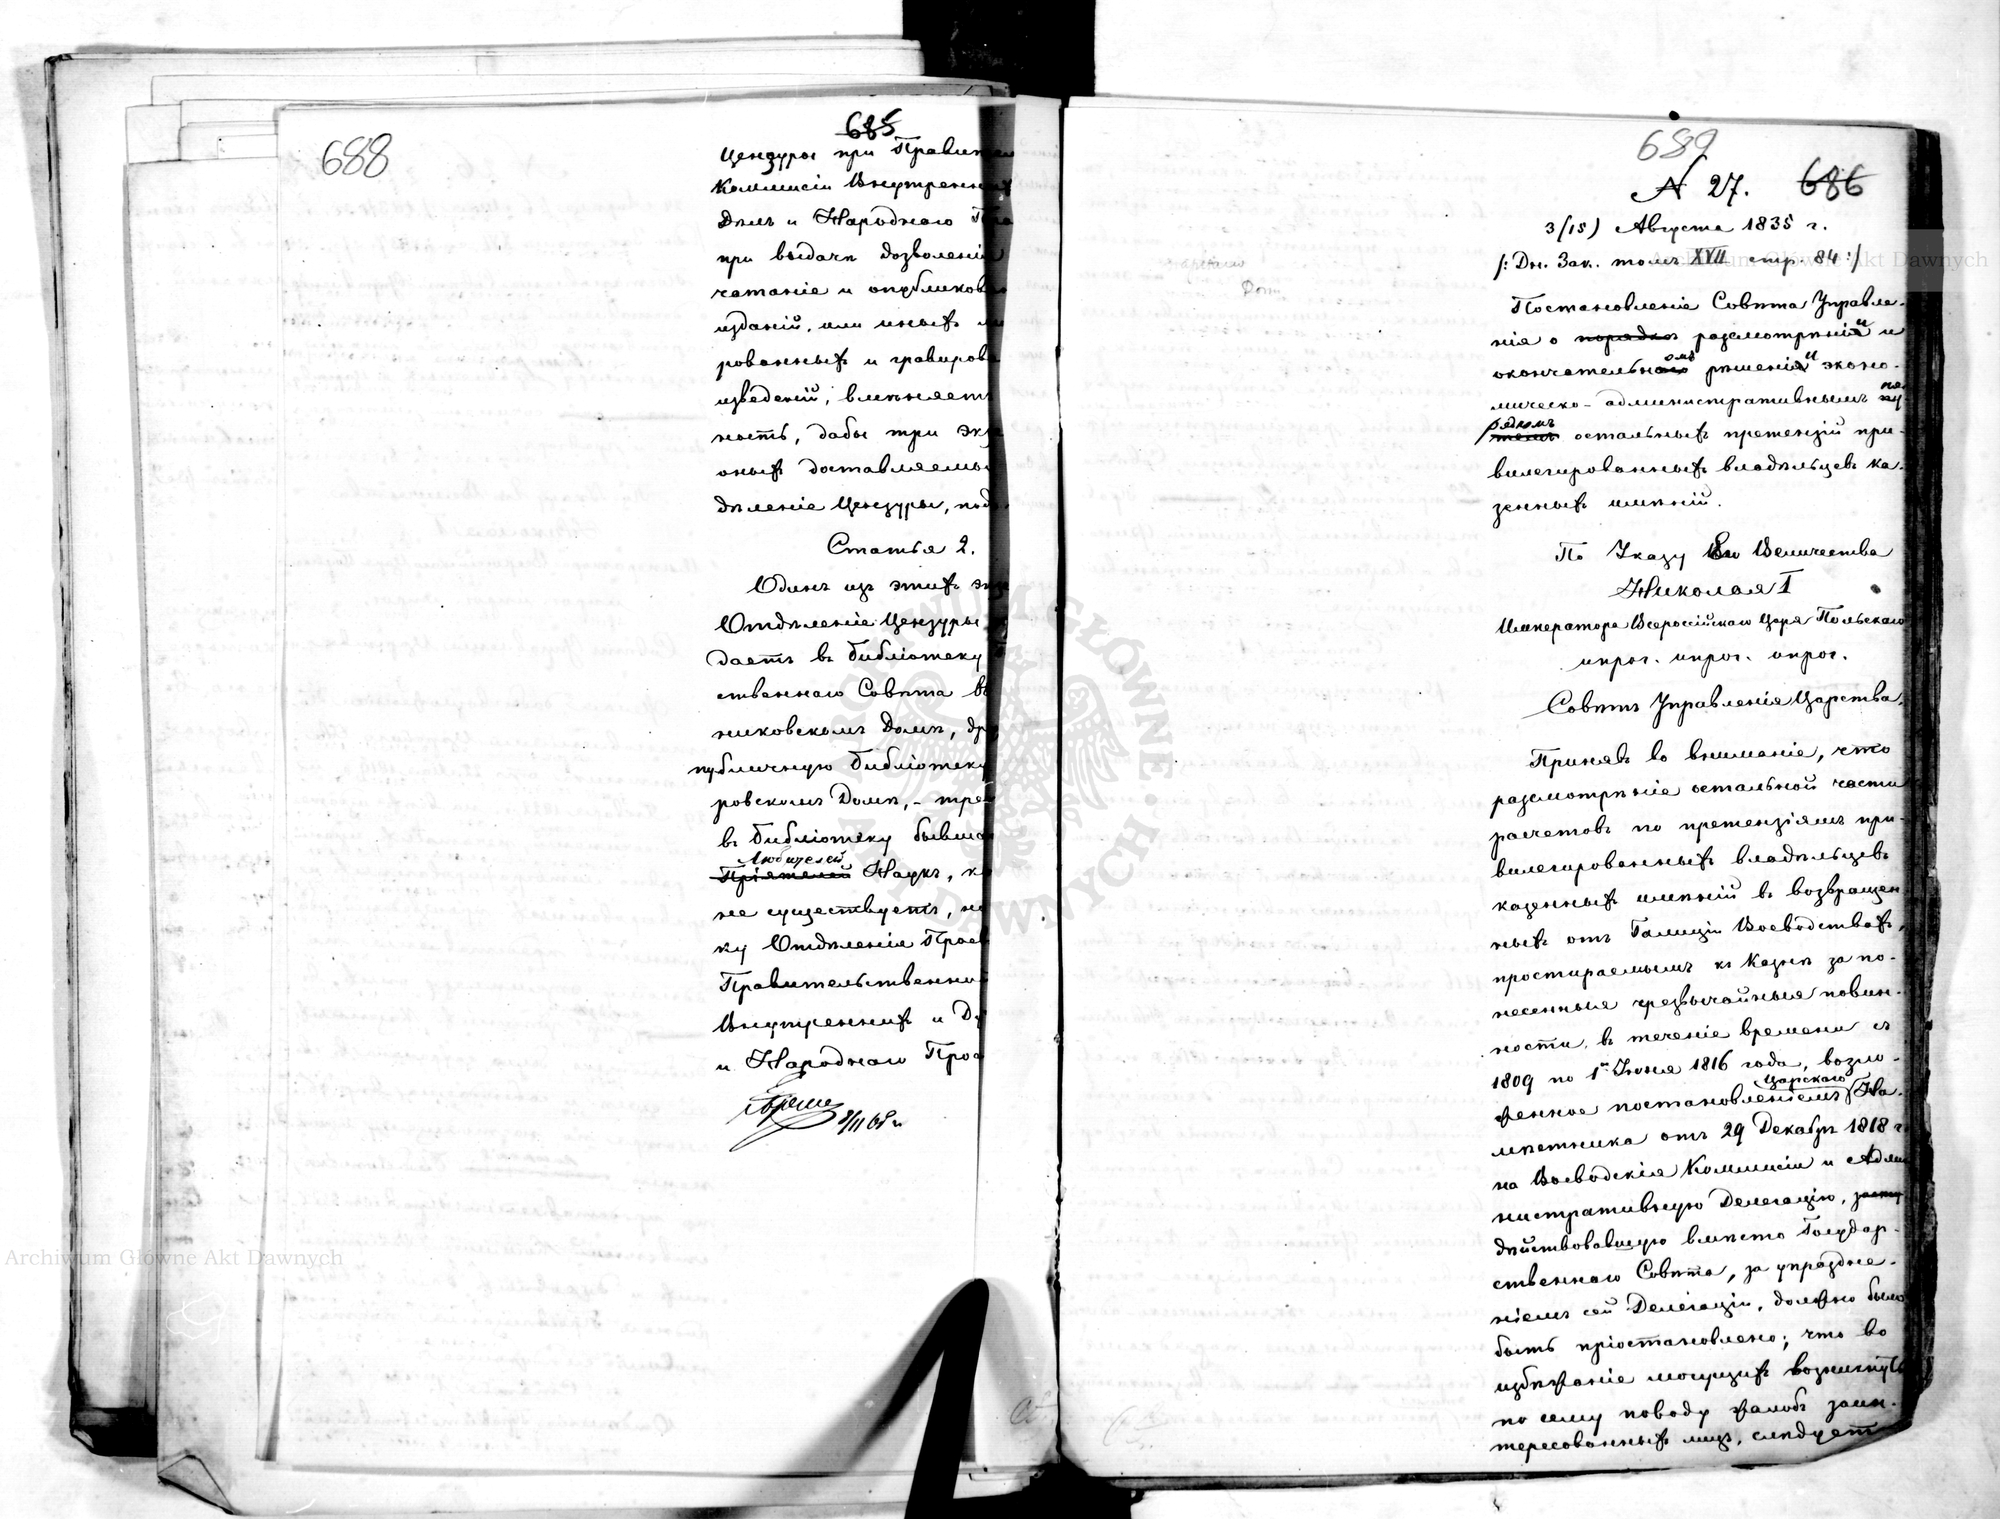 688
685
Цензуры при Правител
Коммисіи Внутренних
Дѣлъ и Народнаго Про
при выдачѣ дозволенія
чатаніе и опубликова
изданій, или иныхъ ли
рованныхъ и гравирова
изведеній, вмѣняетъ
ность, дабы три экз
оныхъ доставляемы
дѣленіе Цензуры, подъ
Статья 2.
Одинъ изъ этихъ экз
Отдѣленіе Цензуры
даетъ въ библіотеку
ственнаго Совѣта въ
никовскомъ Домѣ, дру
публичную библіотеку
ровскомъ Домѣ, - тре
въ библіотеку бывша
Любителей
Пріятелей Наукъ, ко
не существуетъ, но
ку Отдѣленія Просв
Правительственной
Внутреннихъ и Ду
и Народнаго Прос
689
N 27. 686
3/(15) Августа 1835 г.
/: Дн. Зак. томъ XVII стр. 84 :/
Постановленіе Совѣта Управле-
нія о порядкѣ разсмотрѣніи и
окончательномъ рѣшеніи эконо-
мическо-административнымъ по-
рядкомъ остальныхъ претензій при-
вилегированныхъ владѣльцевъ ка-
зенныхъ имѣній.
По Указу Его Величества
Николая I
Императора Всероссійскаго Царя Польскаго
и проч. и проч. и проч.
Совѣтъ Управленія Царства.
Принявъ во вниманіе, что
разсмотрѣніе остальной части
расчетовъ по претензіямъ при-
вилегированныхъ владѣльцевъ
казенныхъ имѣній въ возвращен-
ныхъ отъ Галиціи Воеводствахъ,
простираемымъ къ Казнѣ за по-
несенныя чрезвычайныя повин-
ности, въ теченіе времени съ
1809 по 1е Іюня 1816 года, возло-
Царскаго
женное постановленіемъ На-
мѣстника отъ 29 Декабря 1818 г.
на Воеводскія Коммисіи и Адми
нистративную Делегацію,
дѣйствовавшую вмѣсто Государ-
ственнаго Совѣта, за упраздне-
ніемъ сей Делегаціи, должно было
быть пріостановлено; что во
избѣжаніе могущихъ возникнуть
по сему поводу жалобъ заин-
тересованныхъ лицъ, слѣдуетъ
Archiwum Główne Akt Dawnych
Archiwum Główne Akt Dawnych
ARCHIWUM GŁÓWNE AKT DAWNYCH